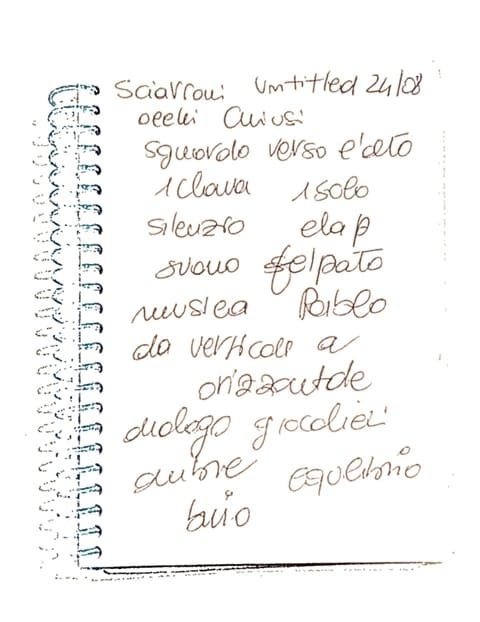 Sciarroni Untitled 24/08
occhi chiusi
sguardo verso l'alto
1 clava 1 solo
silenzio clap
suono felpato
musica Pablo
da verticale a
orizzontale
dialogo giocolieri
ombre equilibrio
buio